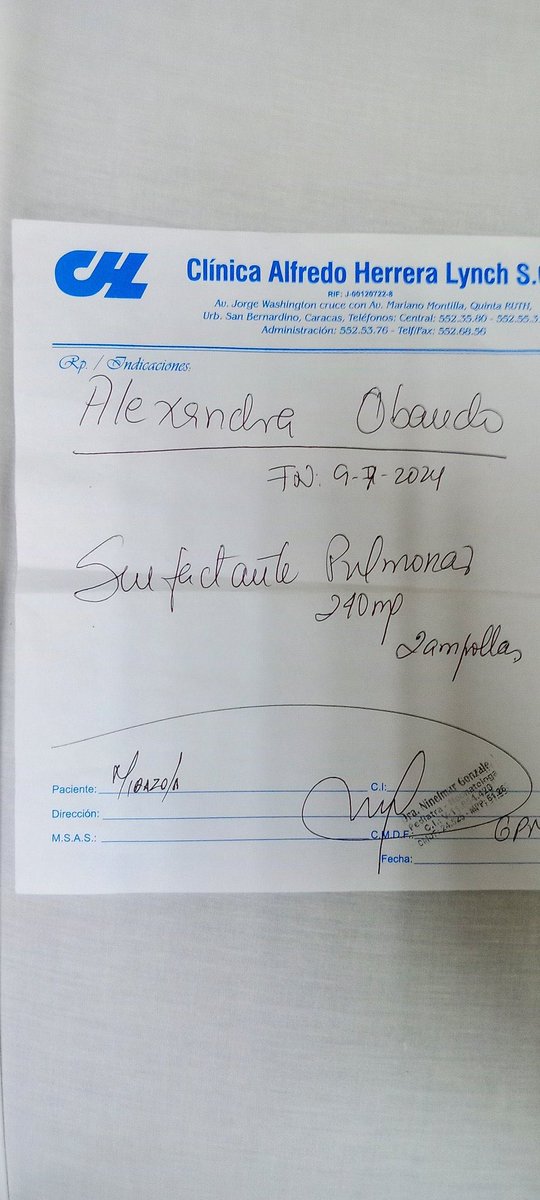 CHL
Clínica Alfredo Herrera Lynch S.
RIF: J-00120722-8
Av. Jorge Washington cruce con Av. Mariano Montilla, Quinta RUTH,
Urb. San Bernardino, Caracas, Teléfonos: Central: 552.35.80 - 552.55.3
Administración: 552.53.76 - Telf/Fax: 552.68.56
Rp. / Indicaciones:
Alexandra Obando
FN: 9-7-2024
Surfactante Pulmonar
240mg
2ampollas
Paciente: C.I:
Dra. Ninelmar Gonzale
Dirección:
M.S.A.S.: C.M.D.F.
Fecha: